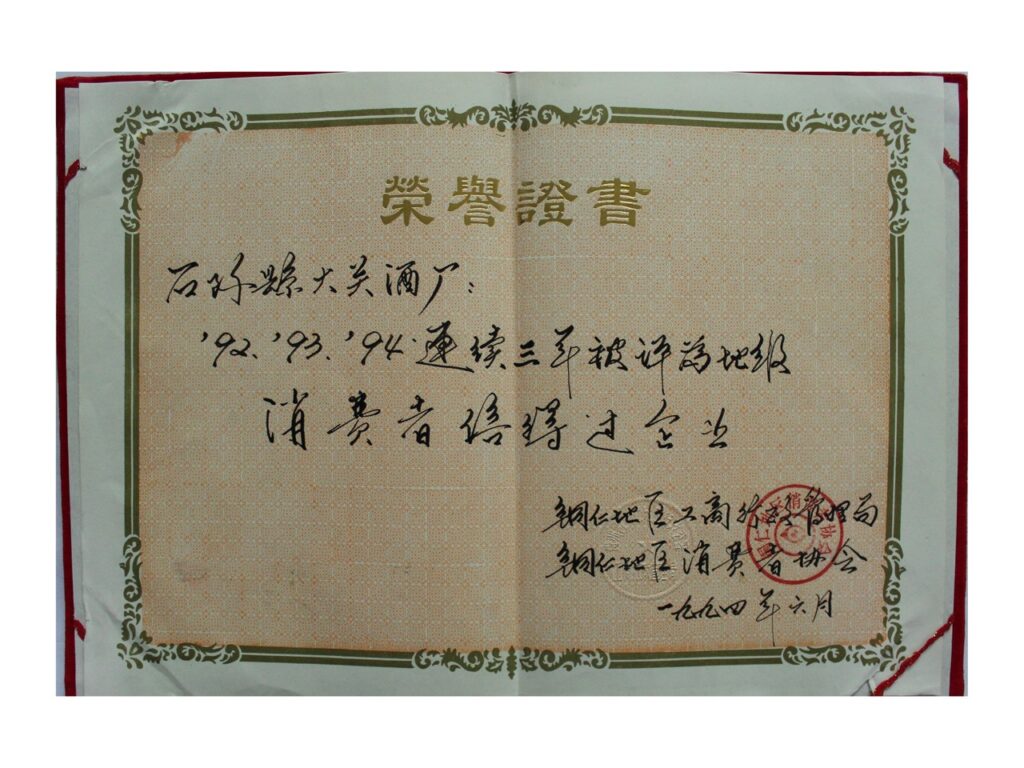 榮譽證書
石阡縣大关酒厂:
'92、'93、'94连续三年被评為地级
消费者信得过企业
铜仁地区工商行政管理局
铜仁地区消费者协会
一九九四年六月